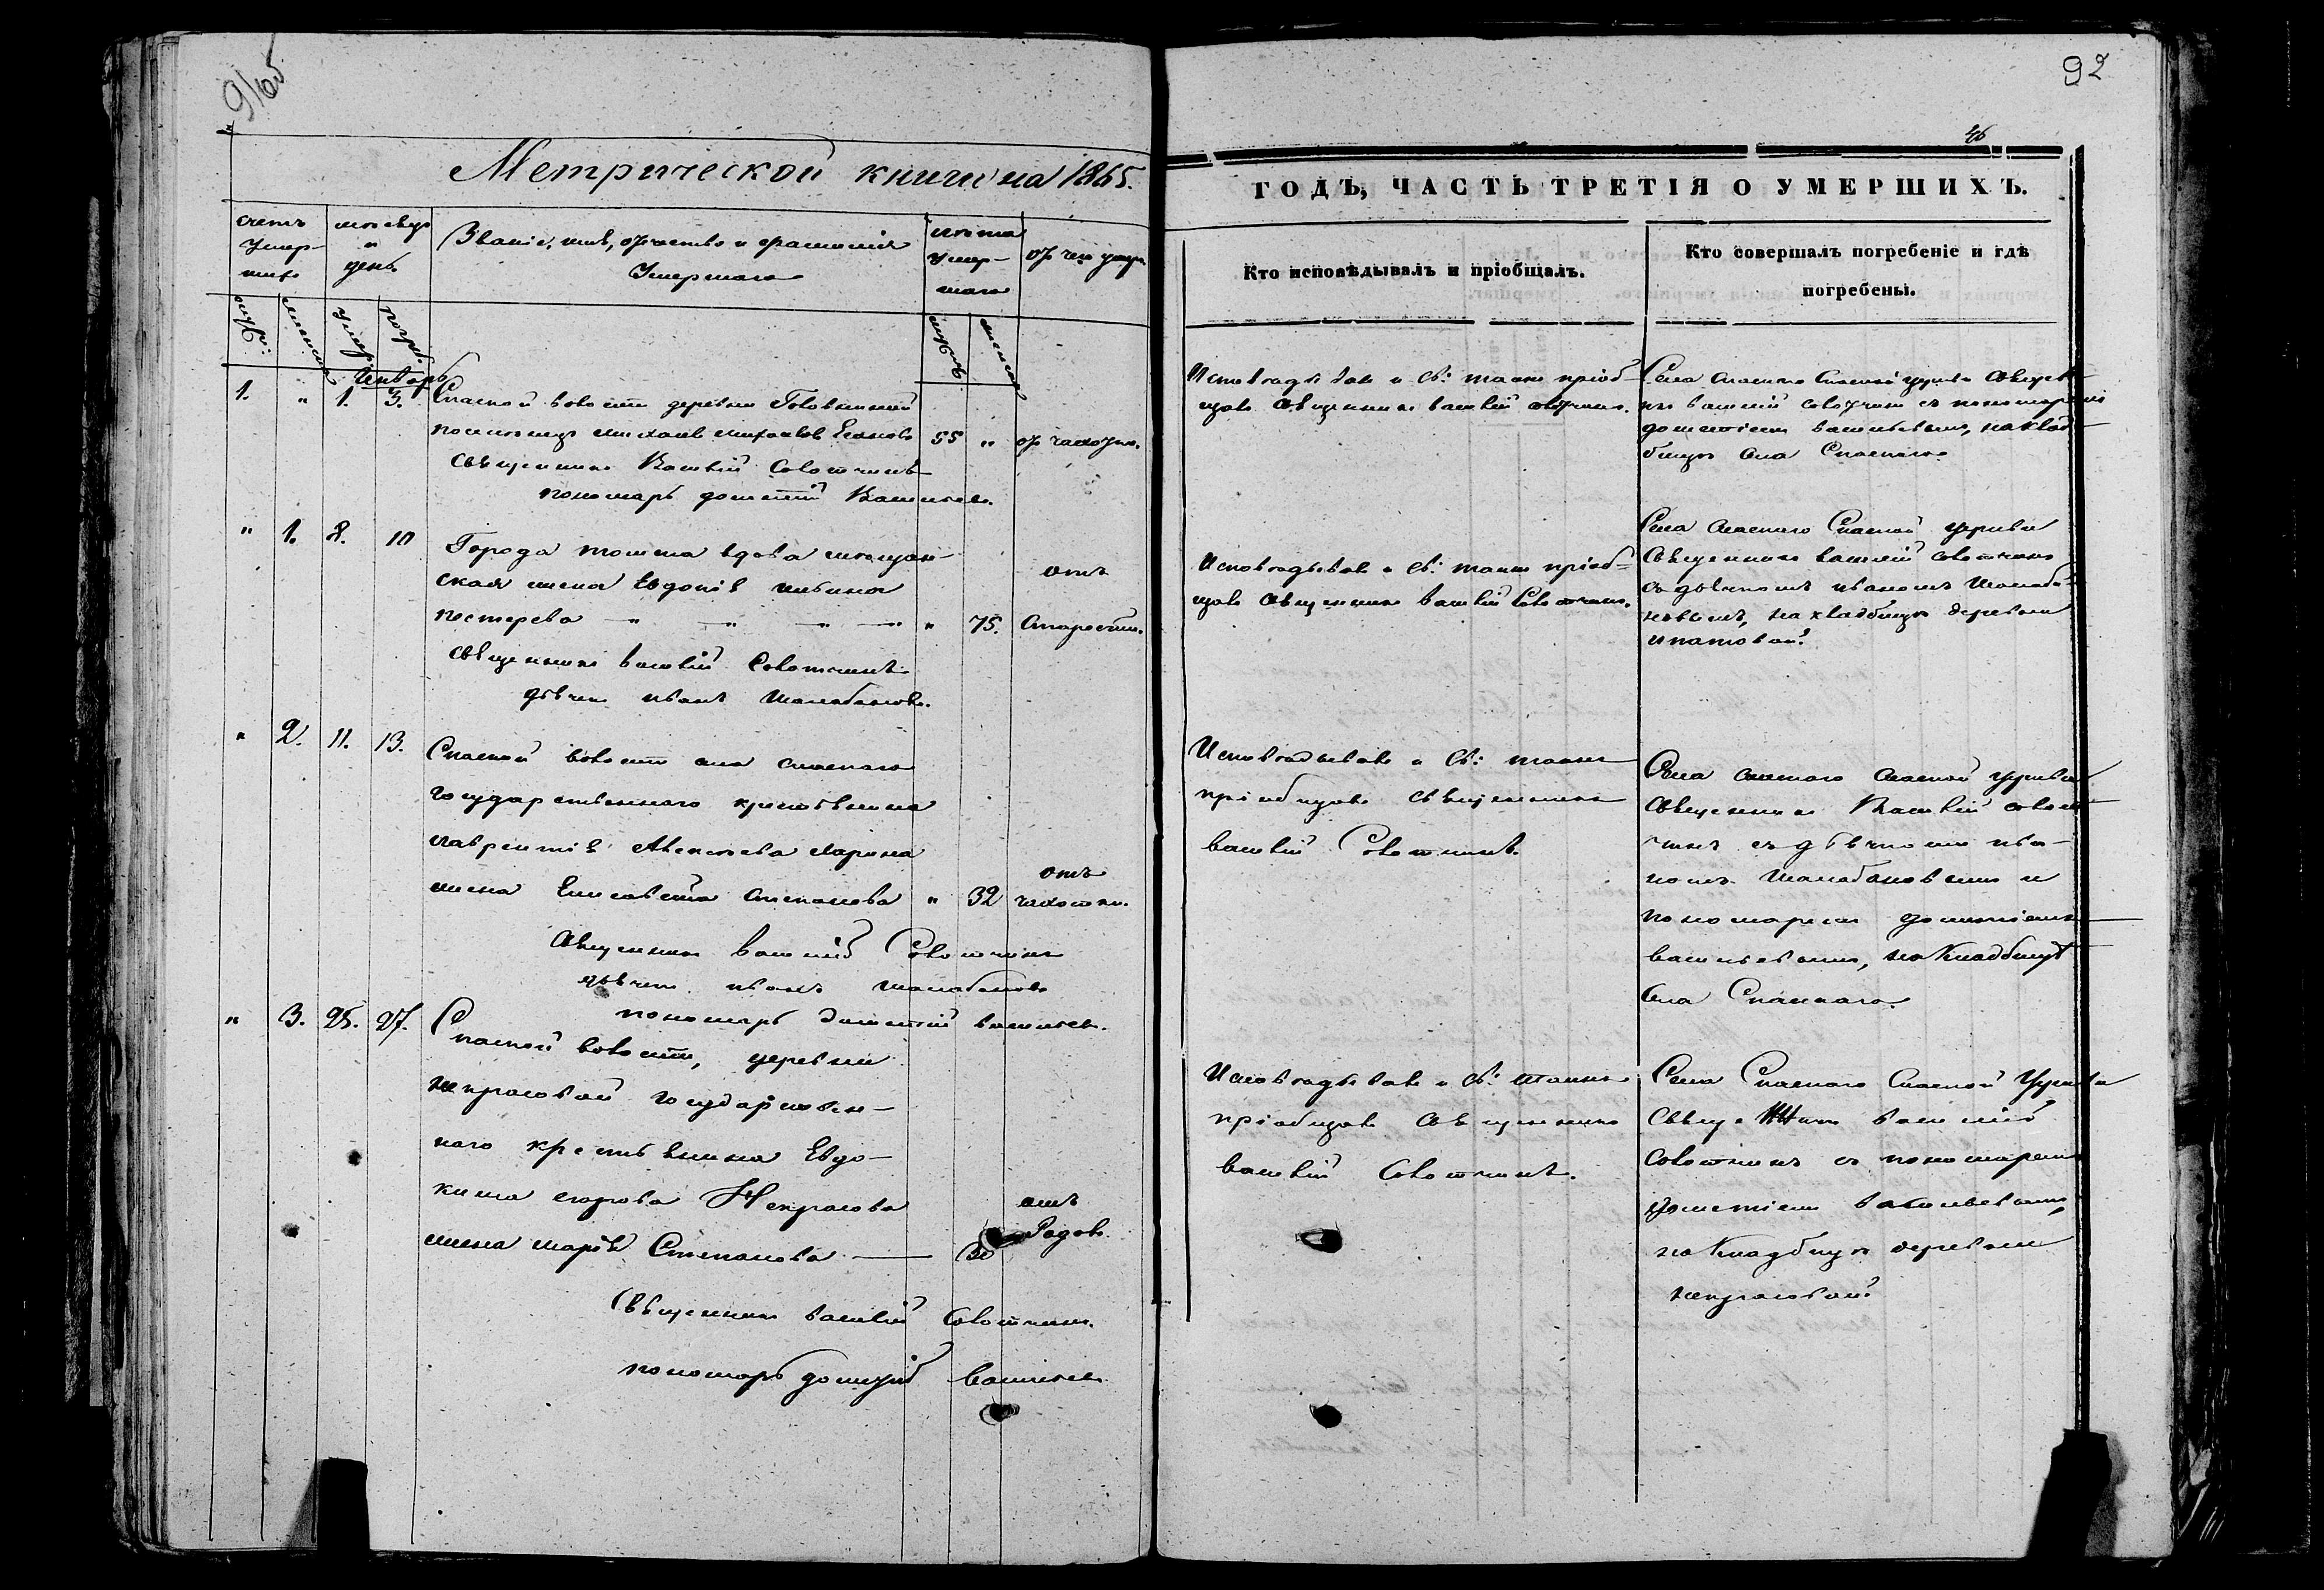 91об
92
46
Метрической книги на 1865.
ГОДЪ, ЧАСТЬ ТРЕТІЯ О УМЕРШИХЪ.
счетъ умер-
шихъ
месяцъ
и
день
Званіе, имя, отчество и фамилія
Умершаго
лѣта
умер-
шаго
отъ чего умеръ
Кто исповѣдывалъ и пріобщалъ.
Кто совершалъ погребеніе и гдѣ
погребены.
муж:
женска
умер
погр.
мужъ
женска
Январь
1. " 1. 3.
Спаской волости деревни
поселенецъ Михаилъ Михаиловъ 55 " отъ чахотки.
священникъ Василій Совотчинъ
пономарь Дометій Васильевъ.
Исповѣдывалъ и Св: таинъ пріоб-
щалъ Священникъ Василій Совотчинъ.
Села Спаскаго Спаской церкви Священ-
никъ Василій Совотчинъ съ пономаремъ
Дометіемъ Васильевымъ, на клад-
бищѣ Села Спаскаго.
" 1. 8. 10
Города вдова мещан-
ская жена Евдокія
пестерева — " — " — " — " 75. отъ Старости.
священникъ Василій Совотчинъ
дьячек Иванъ Шалабановъ.
Исповѣдывалъ и Св: таинъ пріоб-
щалъ Священникъ Василій Совотчинъ.
Села Спаскаго Спаской церкви
Священникъ Василій Совотчинъ
съ дьячкомъ Иваномъ Шалаба-
новымъ, на кладбищѣ деревни
ипатовой.
" 2. 11. 13.
Спаской волости села Спаскаго
государственнаго крестьянина
лаврентія Ларина
жена Елисавета Степанова " 32 отъ чахотки.
Священникъ Василій Совотчинъ
дьячек Иванъ Шалабановъ
пономарь Дометій Васильев.
Исповѣдывалъ и Св: таинъ
пріобщалъ священникъ
Василій Совотчинъ.
Села Спаскаго Спаской церкви
Священникъ Василій Совот-
чинъ съ дьячкомъ Ива-
номъ Шалабановымъ и
пономаремъ Дометіемъ
Васильевымъ, на Кладбищѣ
Села Спаскаго.
" 3. 25. 27.
Спаской волости, деревни
некрасовой государствен-
наго крестьянина Евдо-
кима егорова Некрасова
жена марія Степанова — 30 отъ Родов.
Священникъ Василій Совотчинъ.
пономарь Дометій Васильев
Исповѣдывалъ и Св: таинъ
пріобщалъ Священникъ
Василій Совотчинъ.
Села Спаскаго Спаской Церкви
Священникъ Василій
Совотчинъ съ пономаремъ
Дометіемъ Васильевымъ,
на Кладбищѣ деревни
некрасовой.